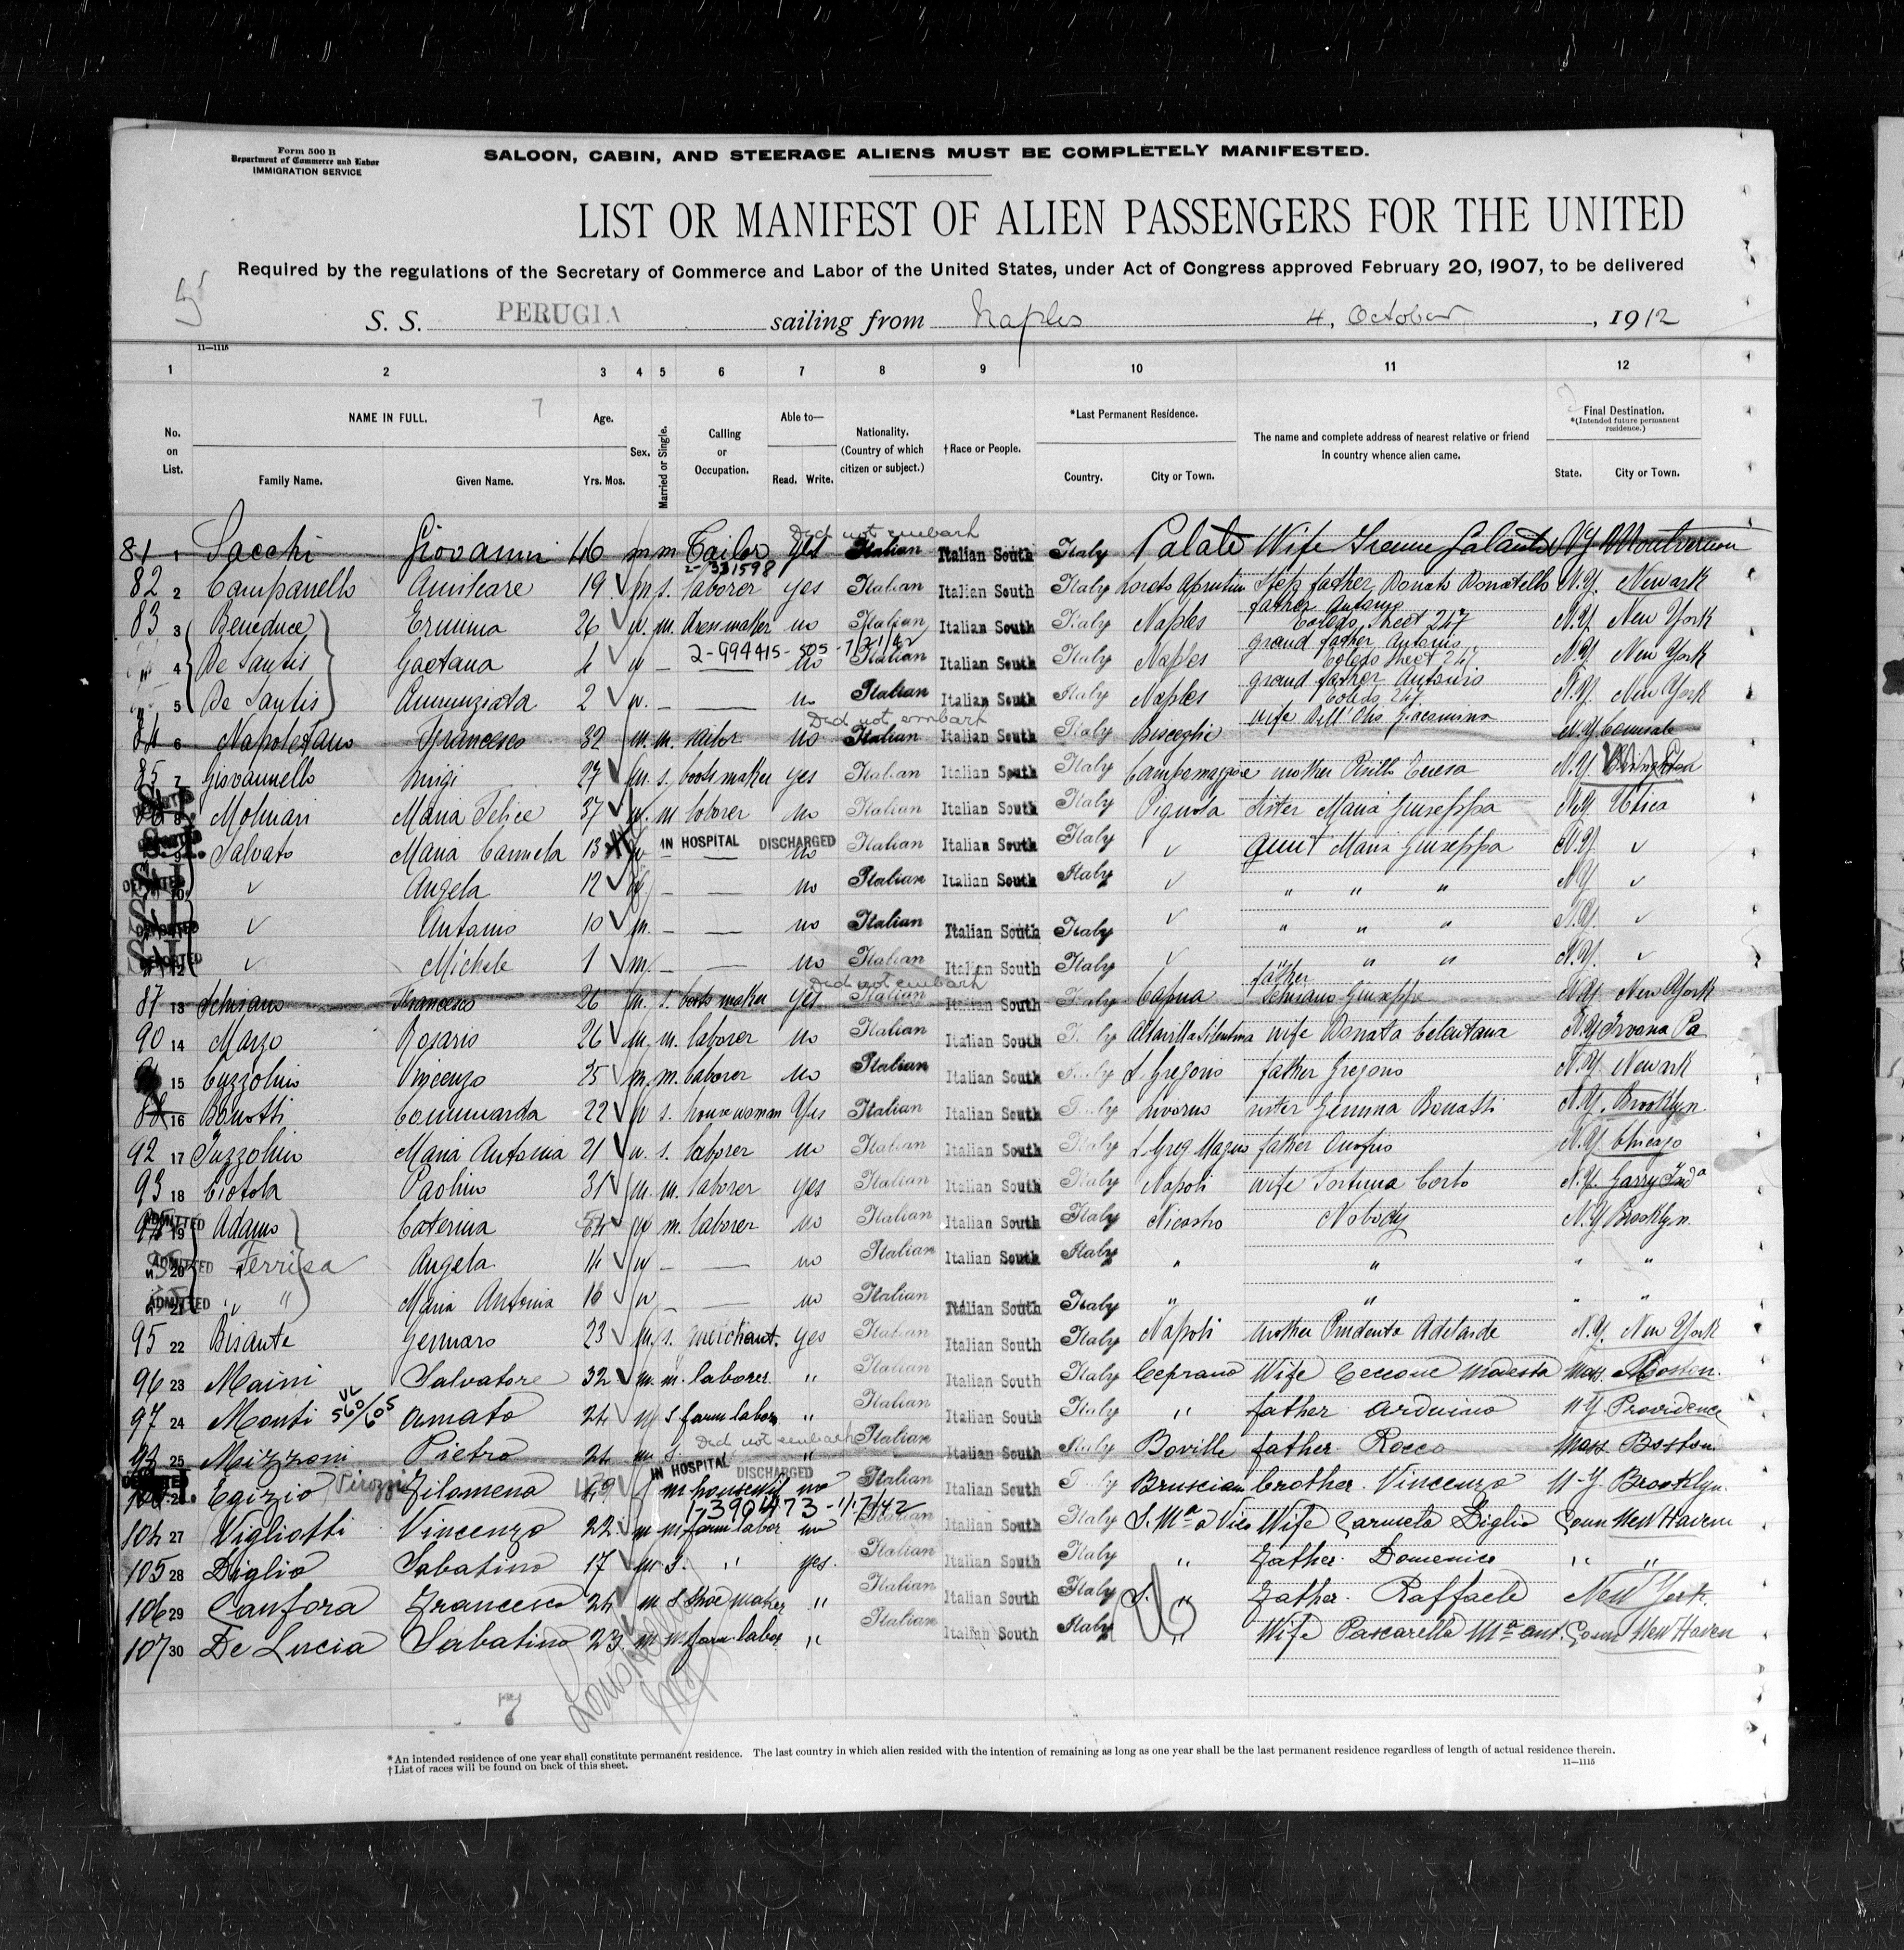 Form 500 B
Department of Commerce and Labor
IMMIGRATION SERVICE
SALOON, CABIN, AND STEERAGE ALIENS MUST BE COMPLETELY MANIFESTED.
LIST OR MANIFEST OF ALIEN PASSENGERS FOR THE UNITED
Required by the regulations of the Secretary of Commerce and Labor of the United States, under Act of Congress approved February 20, 1907, to be delivered
5
S. S. PERUGIA sailing from Naples 4, October, 1912
11—1115
1 2 3 4 5 6 7 8 9 10 11 12
No. on List. NAME IN FULL. 7 Age. Sex. Married or Single. Calling or Occupation. Able to— Nationality. (Country of which citizen or subject.) †Race or People. *Last Permanent Residence. The name and complete address of nearest relative or friend in country whence alien came. Final Destination. *(Intended future permanent residence.)
Family Name. Given Name. Yrs. Mos. Read. Write. Country. City or Town. State. City or Town.
Did not embark
81 1 Sacchi Giovanni 46 m m Tailor yes Italian Italian South Italy Palata Wife N.Y.
2-331598
82 2 Campanello Amilcare 19 m s. laborer yes Italian Italian South Italy Loreto Aprutino Step father Donato Donatello N.Y. Newark
83 3 Beneduce Erminia 26 w. m. dressmaker no Italian Italian South Italy Naples father Antonio Toledo Street 247 N.Y. New York
2-994415-505-7/21/42
4 De Santis Gaetana 4 w — no Italian Italian South Italy Naples grand father Antonio Toledo Street 247 N.Y. New York
5 De Santis Annunziata 2 w. — no Italian Italian South Italy Naples grand father Antonio Toledo 247 N.Y. New York
Did not embark
84 6 Napoletano Francesco 32 m. m. no Italian Italian South Italy Bisceglie wife Dell' Olio Giacomina N.Y.
85 7 Giovannello Luigi 27 m. s. boots maker yes Italian Italian South Italy Campomaggiore mother Teresa N.Y.
86 8 Molinari Maria Felice 37 w. m laborer no Italian Italian South Italy Pignola Sister Maria Giuseppa N.Y. Utica
9 Salvato Maria Carmela 13 w — IN HOSPITAL DISCHARGED no Italian Italian South Italy Aunt Maria Giuseppa N.Y.
DEPORTED 10 Angela 12 w. — no Italian Italian South Italy " " " N.Y.
11 Antonio 10 m. — no Italian Italian South Italy " " " N.Y.
DEPORTED 12 Michele 1 m. — no Italian Italian South Italy " " " N.Y.
Did not embark
87 13 Schiano Francesco 26 m. s. boots maker yes Italian Italian South Italy Capua father Schiano Giuseppe N.Y. New York
90 14 Marzo Rosario 26 m. m. laborer no Italian Italian South Italy Altavilla Silentina wife Donata Celentana N.Y. Pa
15 Cuzzolino Vincenzo 25 m. m. laborer no Italian Italian South Italy S. Gregorio father Gregorio N.Y. Newark
16 22 w s. housewoman Yes Italian Italian South Italy Livorno sister Gemma N.Y. Brooklyn
92 17 Maria Antonia 21 w. s. laborer no Italian Italian South Italy S. Greg Magno father Onofrio N.Y. Chicago
93 18 Ciotola Paolino 31 m. m. laborer yes Italian Italian South Italy Napoli wife Fortuna N.Y. Garry Inda
ADMITTED 19 Adamo Caterina 54 w m. laborer no Italian Italian South Italy Nicastro Nobody N.Y. Brooklyn
ADMITTED 20 Ferrisa Angela 14 w — no Italian Italian South Italy " " " "
ADMITTED 21 " " Maria Antonia 16 w — no Italian Italian South Italy " " " "
95 22 Bisante Gennaro 23 m. s. merchant. yes Italian Italian South Italy Napoli mother Prudente Adelaide N.Y. New York
96 23 Maini Salvatore 32 m. m. laborer " Italian Italian South Italy Ceprano Wife Ceccone Modesta Mass. Boston.
97 24 Monti 560/605 Amato 24 m s farm labor " Italian Italian South Italy " father Arduino N Y Providence
Did not embark
25 Mizzoni Pietro 24 m s. " Italian Italian South Italy Boville father Rocco Mass Boston
IN HOSPITAL DISCHARGED
26 Egizio Pirozzi Filomena 49 f m housewif no Italian Italian South Italy Brusciano brother Vincenzo N-Y. Brooklyn.
1-390473-1/17/42
104 27 Vigliotti Vincenzo 22 m m farm labor no Italian Italian South Italy S. Ma a Vico Wife Carmela Diglio Conn New Haven
105 28 Diglio Sabatino 17 m s. " yes. Italian Italian South Italy " Father Domenico " "
106 29 Canfora Francesco 24 m s shoe maker " Italian Italian South Italy S. " Father Raffaele New York.
107 30 De Lucia Sabatino 23 m m farm labor " Italian Italian South Italy " Wife Pascarella Ma ant. Conn New Haven
7
*An intended residence of one year shall constitute permanent residence. The last country in which alien resided with the intention of remaining as long as one year shall be the last permanent residence regardless of length of actual residence therein.
†List of races will be found on back of this sheet.
11—1115